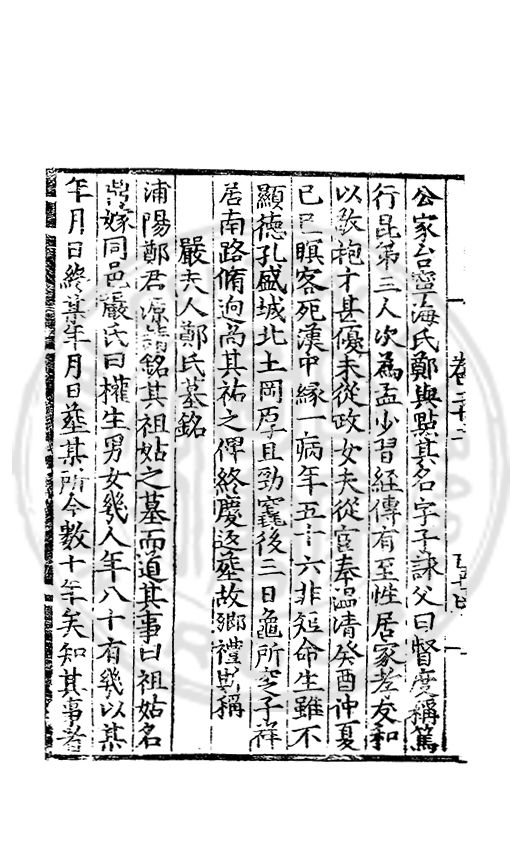 卷二十二
公家台寧海氏鄭與點其名字子詠父曰督度稱篤
行昆弟三人次為孟少習經傳有至性居家孝友和
以敦袍才甚優未從政女夫從官奉温清癸酉仲夏
己巳瞑客死漢中緣一病年五十六非短命生雖不
顯德孔盛城北土岡厚且勁窆後三日龜所定子祥
居南路脩迥尚其祐之俾終慶返塟故鄉禮斯稱
嚴夫人鄭氏墓銘
浦陽鄭君源請銘其祖姑之墓而道其事曰祖姑名
嫁同邑嚴氏曰權生男女幾人年八十有幾以某
年月日終某年月日塟某所今數十年矣知其事者